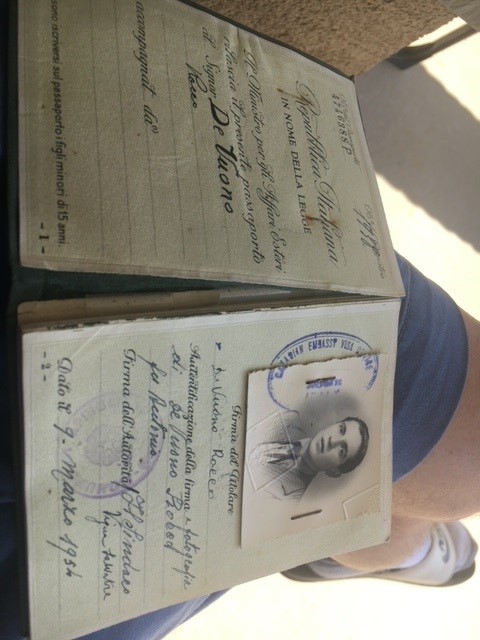 4740888P
Repubblica Italiana
IN NOME DELLA LEGGE
Il Ministro per gli Affari Esteri
rilascia il presente passaporto
al Signor De Vuono
Rocco
accompagnat dal
sono iscriversi sul passaporto i figli minori di 15 anni.
- 1 -
CANADIAN EMBASSY VISA OFFICE
Firma del Titolare
De Vuono Rocco
Autentificazione della firma e fotografia
di De Vuono Rocco
fu
Firma dell'Autorità Il Sindaco
Dato il 9 - Marzo 1954
- 2 -